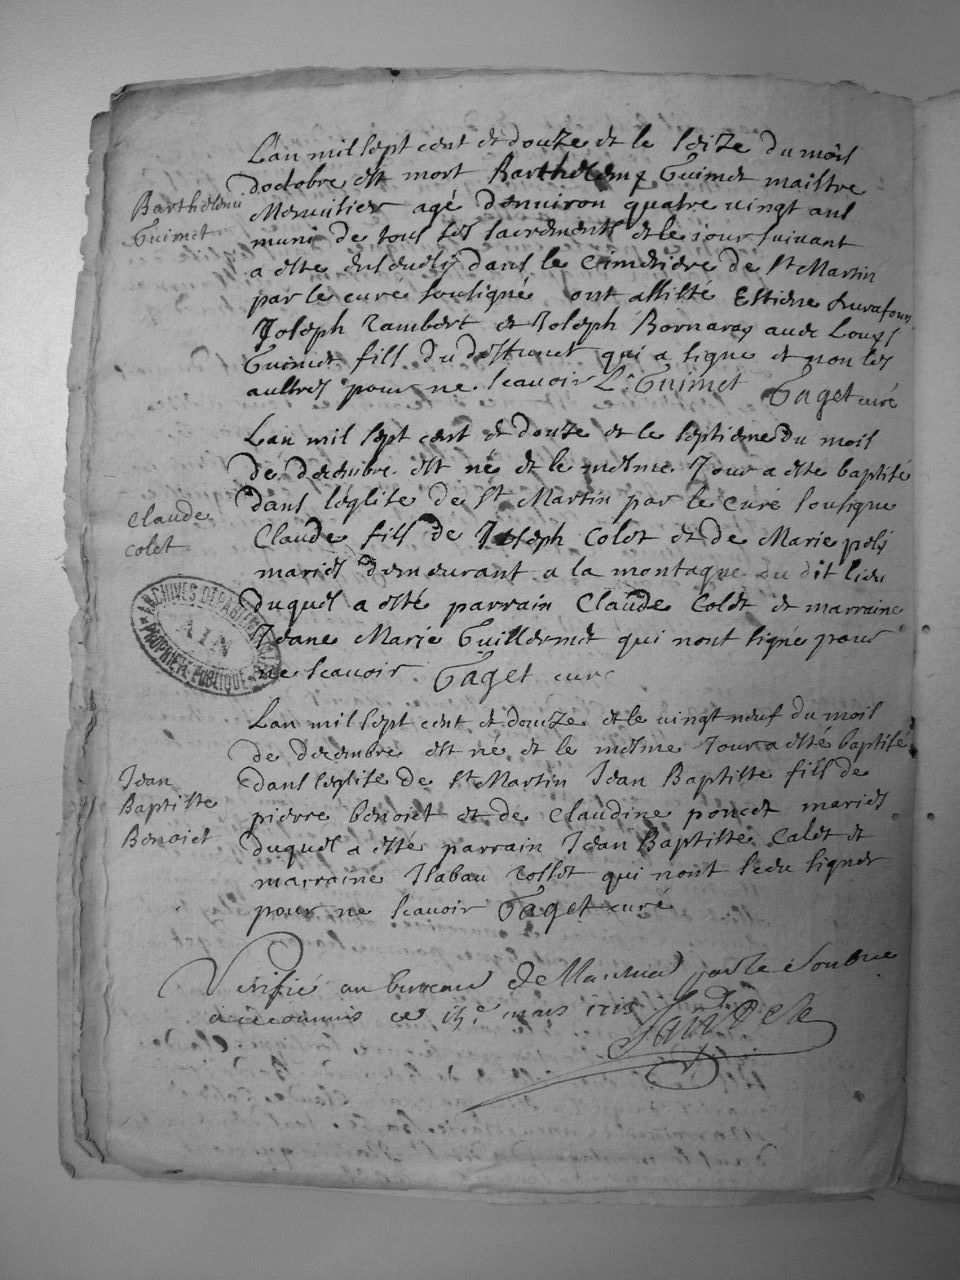 Lan mil sept cent et douze et le seize du mois
doctobre est mort Barthelemy Guimet maistre
Barthelemi
Guimet
Menuisier agé denuiron quatre uingt ans
muni de tous ses sacrements et le iour suiuant
a esté enseueli dans le cimetiere de St Martin
par le curé sousigné ont assisté Estiene durafour
Joseph rambert et Joseph Bornaray auec Louys
Guimet fils du deffunct qui a signe et non les
aultres pour ne scauoir L. Guimet Gaget curé
Lan mil sept cent et douze et le septieme du mois
de decembre est né et le mesme Jour a esté baptisé
dans léglise de St Martin par le curé sousigne
Claude
colet
Claude fils de Joseph Colet et de Marie poli
mariés demeurant a la montagne du dit lieu
duquel a esté parrain Claude Colet et marraine
Jeane Marie Guillermet qui nont signé pour
ne scauoir Gaget curé
ARCHIVES DEPARTEMENTALES
AIN
PROPRIETE PUBLIQUE
Lan mil sept cent et douze et le uingt neuf du mois
de decembre est né et le mesme Jour a esté baptisé
Jean
Baptiste
Benoiet
dans leglise de St Martin Jean Baptiste fils de
pierre benoiet et de Claudine poncet mariés
duquel a esté parrain Jean Baptiste Calet et
marraine Isabau Collet qui nont sceu signer
pour ne scauoir Gaget curé
Verifié au bureau de par le
ce 15e mars 1713